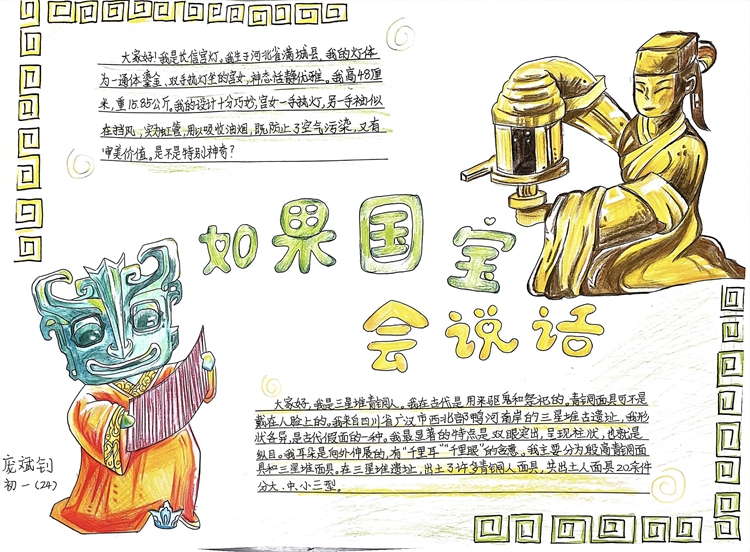 大家好！我是长信宫灯。我生于河北省满城县，我的灯体
为一通体鎏金、双手执灯坐的宫女，神态恬静优雅。我高48厘
米，重15.85公斤。我的设计十分巧妙，宫女一手执灯，另一手袖似
在挡风，实为虹管，用以吸收油烟，既防止了空气污染，又有
审美价值。是不是特别神奇？
如果国宝
会说话
大家好，我是三星堆青铜人。我在古代是用来驱鬼和祭祀的。青铜面具可不是
戴在人脸上的。我来自四川省广汉市西北部鸭河南岸的三星堆古遗址，我形
状各异，是古代假面的一种。我最显著的特点是双眼突出，呈现柱状，也就是
纵目。我耳朵是向外伸展的，有“千里耳”“千里眼”的含意。我主要分为殷商青铜面
具和三星堆面具。在三星堆遗址，出土了许多青铜人面具，共出土人面具20余件
分大、中、小三型。
庞斌钊
初一（24）